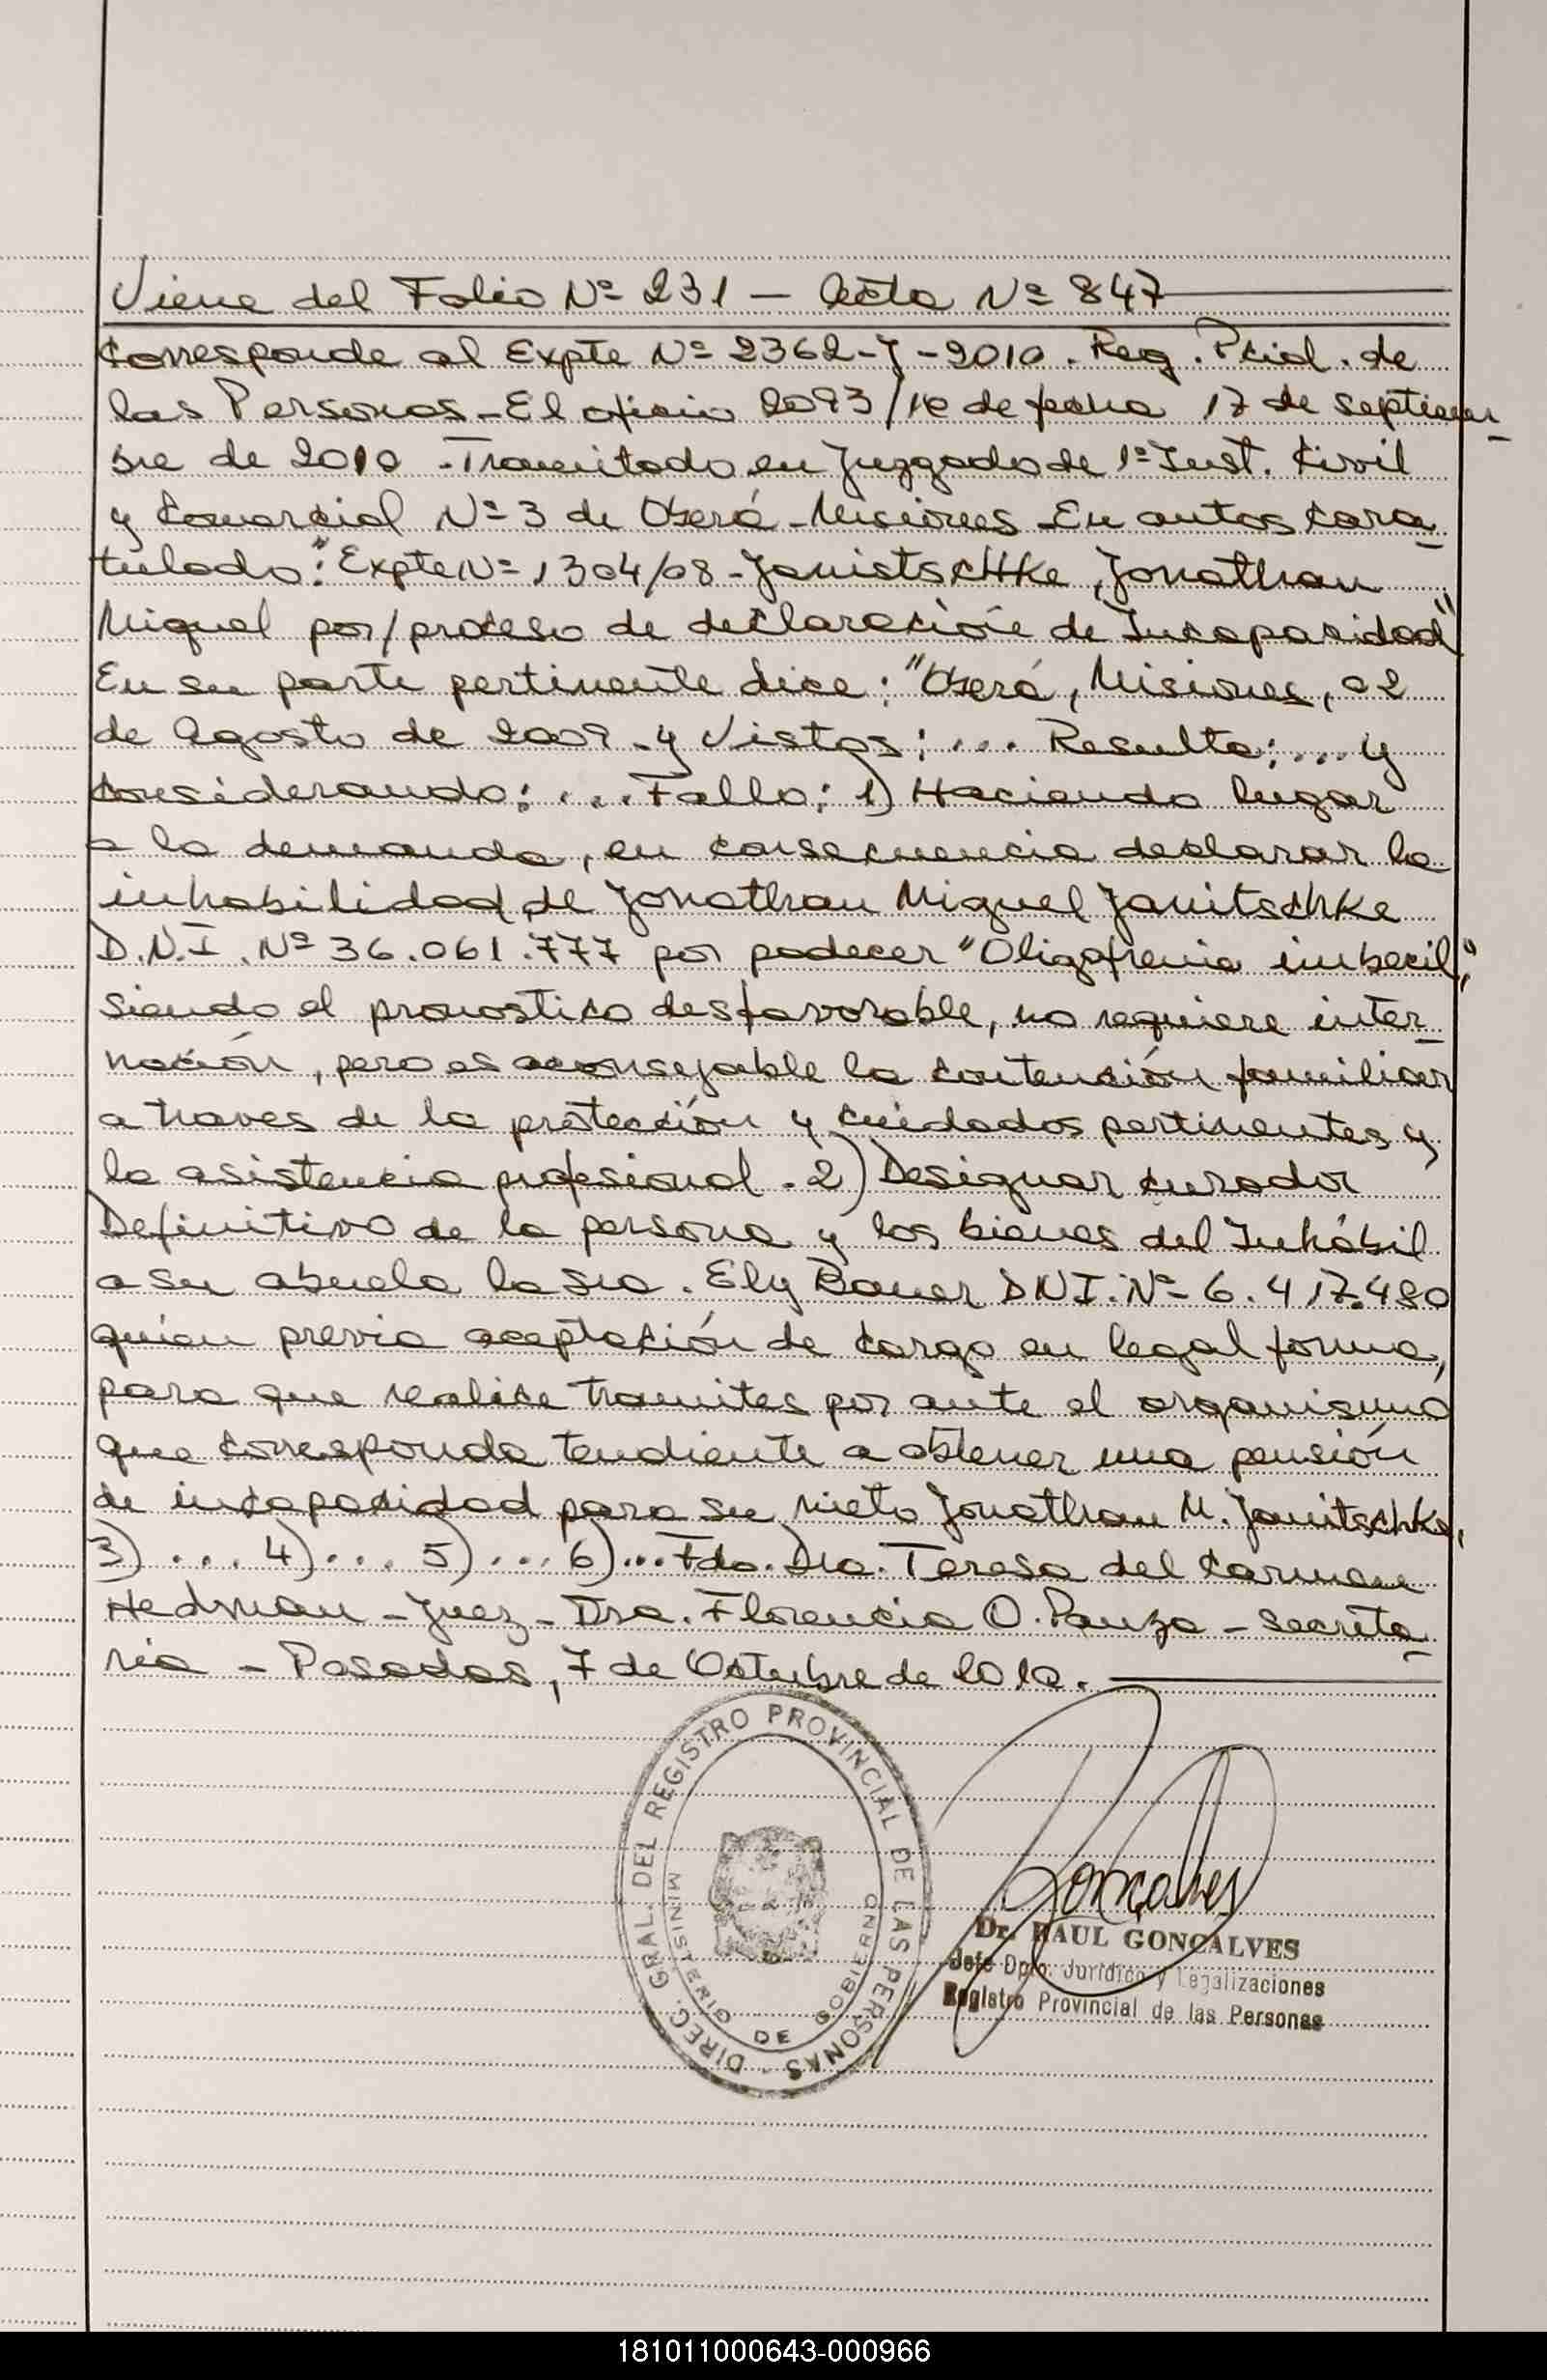 Viene del Folio Nº 231 - Acta Nº 847
Corresponde al Expte Nº 2362-J-2010. Reg. Pcial. de
las Personas - El oficio 2093/10 de fecha 17 de septiem-
bre de 2010 - Tramitado en Juzgado de 1ª Inst. Civil
y Comercial Nº 3 de Oberá - Misiones - En autos cara-
tulado: "Expte Nº 1304/08 - Janistschke, Jonathan
Miguel por/proceso de declaración de Incapacidad"
En su parte pertinente dice: "Oberá, Misiones, 02
de Agosto de 2009 - y Vistos: ... Resulta: ... y
Considerando: .... Fallo: 1) Haciendo lugar
a la demanda, en consecuencia declarar la
inhabilidad de Jonathan Miguel Janitschke
D.N.I. Nº 36.061.777 por padecer "Oligofrenia imbecil",
siendo el pronostico desfavorable, no requiere inter-
nación, pero es aconsejable la contención familiar
a traves de la protección y cuidados pertinentes y
la asistencia profesional. 2) Designar curador
Definitivo de la persona y los bienes del Inhábil
a su abuela la sra. Ely Bauer DNI. Nº 6.417.480
quien previa aceptación de cargo en legal forma,
para que realice tramites por ante el organismo
que corresponda tendiente a obtener una pensión
de incapacidad para su nieto Jonathan M. Janitschke,
3) .... 4) .... 5) .... 6) ... Fdo. Dra. Teresa del Carmen
Hedman - Juez - Dra. Florencia O. Panza - secreta-
ria - Posadas, 7 de Octubre de 2010.
DIREC. GRAL. DEL REGISTRO PROVINCIAL DE LAS PERSONAS -
MINISTERIO DE GOBIERNO
Goncalves
Dr. RAUL GONCALVES
Jefe Dpto. Jurídico y Legalizaciones
Registro Provincial de las Personas
181011000643-000966